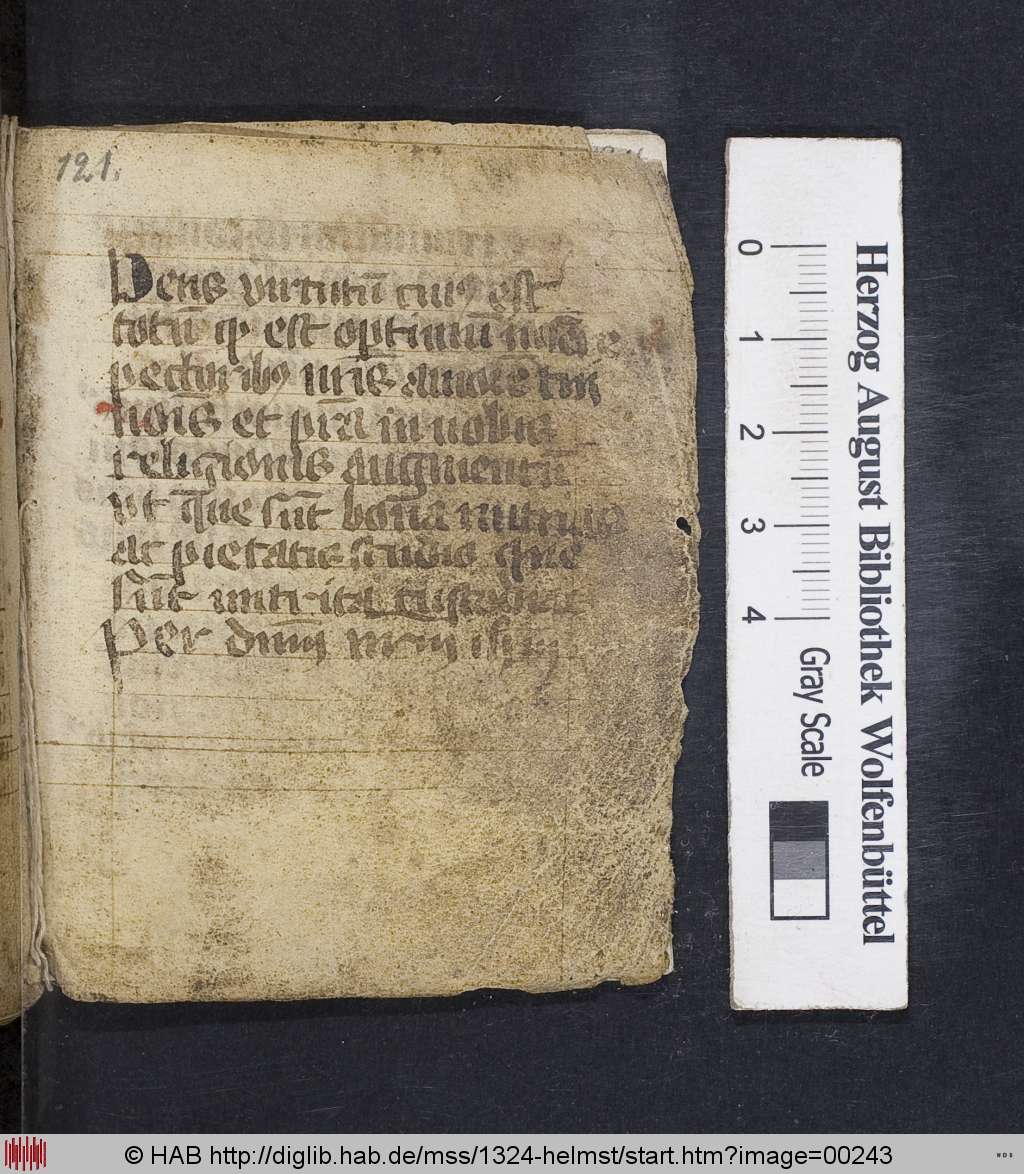 121.
Deus virtutū cuiꝰ est
totū qͥ est optimū insere
pectoribꝯ nr̄is amorē tui
noīs et pͥra in nobis
religionis augmentū
ut q̄ue sūt bona nutrias
ac pietatis studio que
sūt nutrita custodias
Per dnm̄ nrm̄
Herzog August Bibliothek Wolfenbüttel
0
1
2
3
4
Gray Scale
© HAB http://diglib.hab.de/mss/1324-helmst/start.htm?image=00243